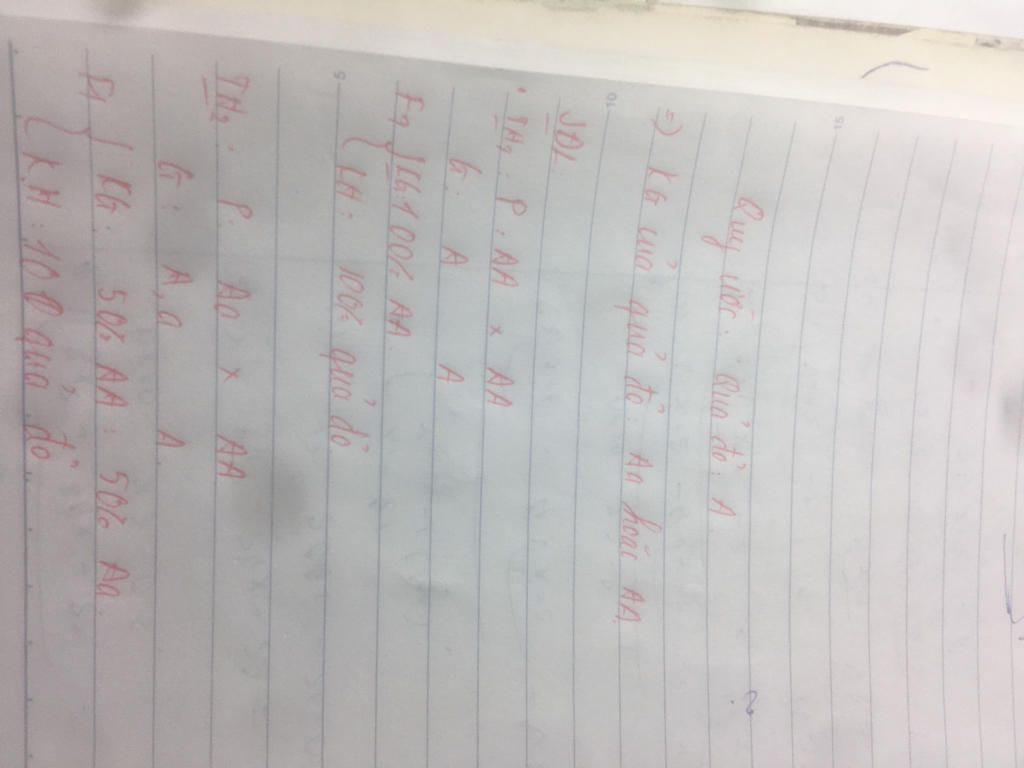 Quy ước: Quả đỏ: A
=) KG của quả đỏ: Aa hoặc AA.
SĐL:
• TH1: P: AA x AA
G: A A
F1 { KG: 100% AA.
KH: 100% quả đỏ
TH2: P: Aa x AA
G: A, a A
F1 { KG: 50% AA : 50% Aa.
KH: 100 quả đỏ
5
10
15